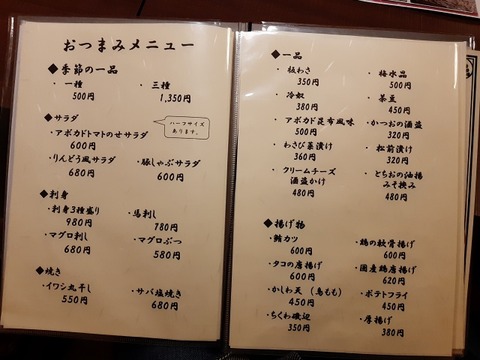 おつまみメニュー
◆季節の一品
・一種
500円
・三種
1,350円
◆サラダ
ハーフサイズ
あります。
・アボカドトマトのせサラダ
600円
・りんどう風サラダ
680円
・豚しゃぶサラダ
600円
◆刺身
・刺身3種盛り
980円
・馬刺し
780円
・マグロ刺し
680円
・マグロぶつ
580円
◆焼き
・イワシ丸干し
550円
・サバ塩焼き
680円
◆一品
・板わさ
350円
・梅水晶
500円
・冷奴
380円
・茶豆
450円
・アボカド昆布風味
500円
・かつおの酒盗
320円
・わさび茎漬け
360円
・松前漬け
320円
・クリームチーズ
酒盗かけ
480円
・とちおの油揚
みそ挟み
480円
◆揚げ物
・鮪カツ
600円
・鶏の軟骨揚げ
600円
・タコの唐揚げ
600円
・国産鶏唐揚げ
620円
・かしわ天(鳥もも)
450円
・ポテトフライ
450円
・ちくわ磯辺
350円
・厚揚げ
380円